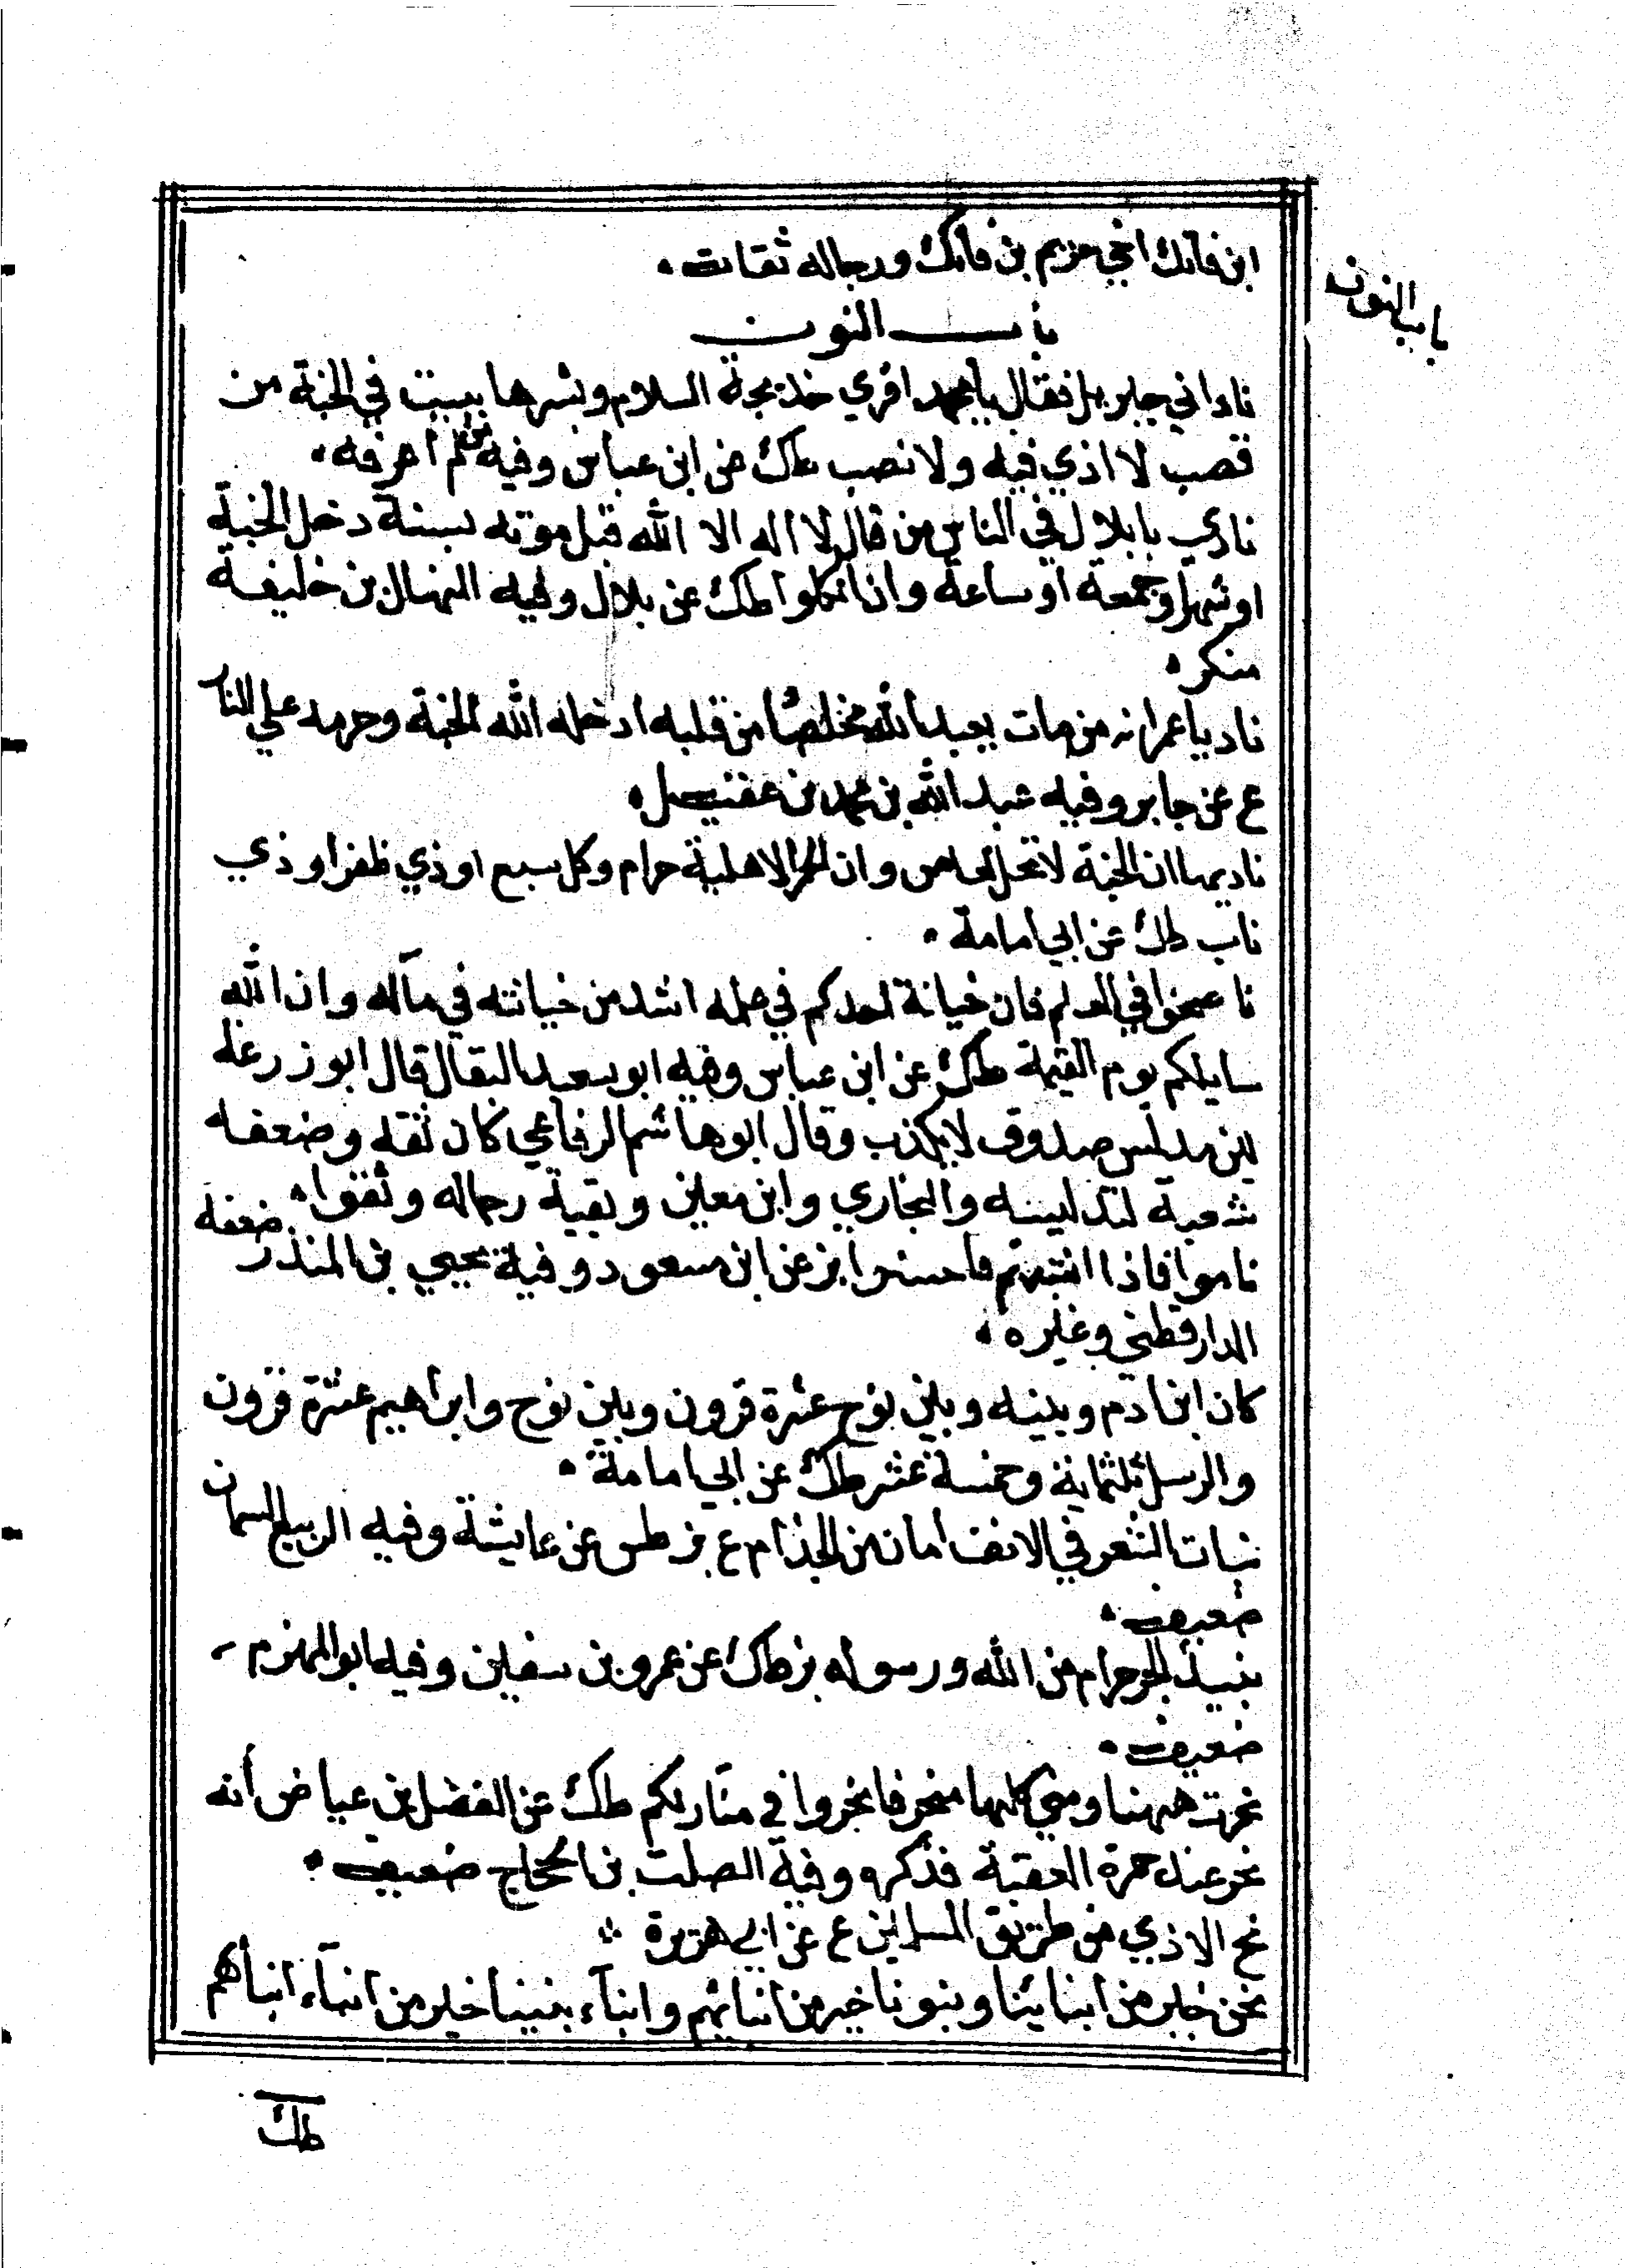 ابن فاتك اخي خريم بن فاتك ورجاله ثقات
باب النون
باب النون
ناداني جبريل فقال يا محمد اقري خديجة السلام وبشرها ببيت في الجنة من
قصب لا اذي فيه ولا نصب طك عن ابن عباس وفيه من لم أعرفه
نادي يا بلال في الناس من قال لا اله الا الله قبل موته بسنة دخل الجنة
او شهرا وجمعة او ساعة واذا اتكلوا طك عن بلال وفيه المنهال بن خليفة
منكر
ناد يا عمر انه من مات يعبد الله مخلصا من قلبه ادخله الله الجنة وحرمه علي النار
ع عن جابر وفيه عبد الله بن محمد بن عقيل
ناد ان الجنة لا تحل لعاص وان الحمر الاهلية حرام وكل سبع او ذي ظفر او ذي
ناب طك عن ابي امامة
ناصحوا في العلم فان خيانة احدكم في علمه اشد من خيانته في ماله وان الله
سايلكم يوم القيمة طك عن ابن عباس وفيه ابو سعيد البقال قال ابو زرعة
لين مدلس صدوق لا يكذب وقال ابو هاشم الرفاعي كان ثقة وضعفه
شعبة لتدليسه والبخاري وابن معين وبقية رجاله وثقوا
ناموا فاذا انتبهتم فاحسنوا بز عن ابن مسعود وفيه يحيي بن المنذر ضعفه
الدارقطني وغيره
كان ابن ادم وبينه وبين نوح عشرة قرون وبين نوح وابراهيم عشرة قرون
والرسل ثلثماية وخمسة عشر طك عن ابي امامة
نبات الشعر في الانف امان من الجذام ع بز طس عن عايشة وفيه الربيع السمان
ضعيف
نبيذ الجر حرام من الله ورسوله بز طك عن عمرو بن سفين وفيه ابو المهزم
ضعيف
نحرت ههنا ومني كلها منحر فانحروا في منازلكم طك عن الفضل بن عياض أنه
نحر عند جمرة العقبة فذكره وفيه الصلت بن الحجاج ضعيف
نح الاذي من طريق المسلمين ع عن ابي هريرة
نحن خير من ابنائنا وبنونا خير من ابنائهم وابناء بنينا خير من ابناء ابنائهم
طك